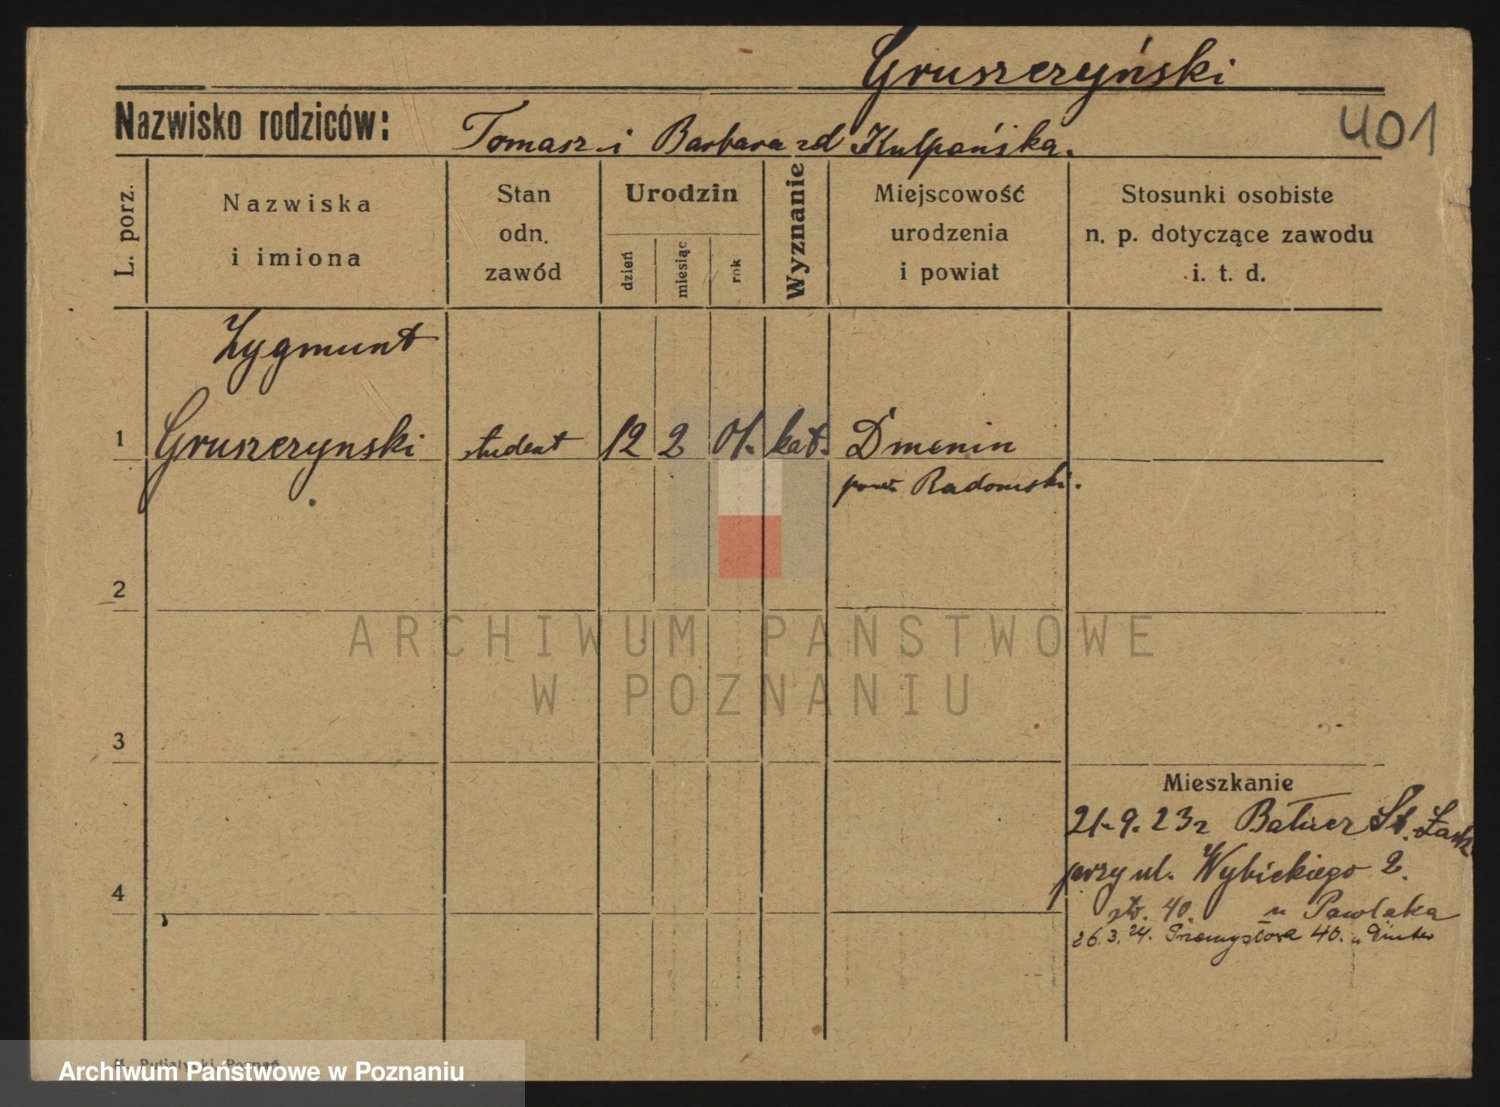 Gruszczyński
Nazwisko rodziców: Tomasz i Barbara zd Kulpańska.
401
L. porz.
Nazwiska
i imiona
Stan
odn.
zawód
Urodzin
dzień
miesiąc
rok
Wyznanie
Miejscowość
urodzenia
i powiat
Stosunki osobiste
n. p. dotyczące zawodu
i. t. d.
Zygmunt
1 Gruszczynski student 12 2 01. kat. Dmenin
pow. Radomski.
2
ARCHIWUM PAŃSTWOWE
W POZNANIU
3
Mieszkanie
21.9.23 St. Łazarz
przy ul. Wybickiego 2.
4
str. 40. u Pawlaka
26.3.24. Przemysłowa 40. u
Poznań
Archiwum Państwowe w Poznaniu